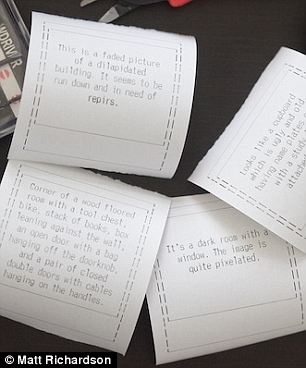 This is a faded picture
of a dilapidated
building. It seems to be
run down and in need of
repirs.
looks like a cupboard
which is ugly and
having name plates
with a
Corner of a wood floored
room with a tool chest,
bike, stack of books, box
leaning against the wall,
an open door with a bag
hanging of the doorknob,
and a pair of closed
double doors with cables
hanging on the handles.
It's a dark room with a
window. The image is
quite pixelated.
© Matt Richardson